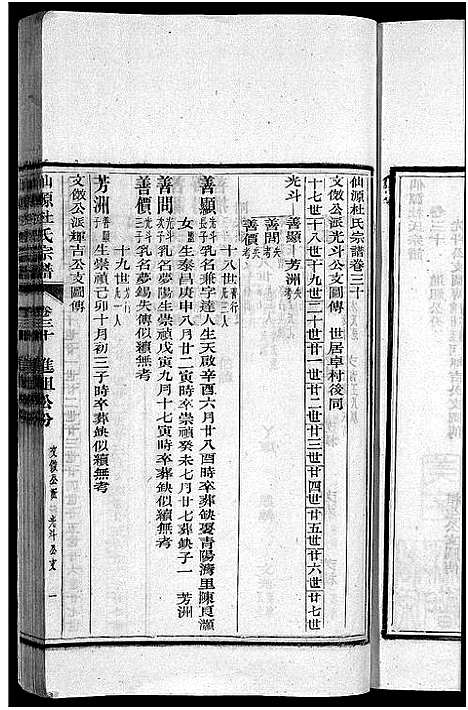 仙源杜氏宗譜卷三十
文儆公派光斗公支圖傳　世居卓村後同
十七世十八世十九世二十世廿一世廿二世廿三世廿四世廿五世廿六世廿七世
光斗　善顯　芳洲考
善問考失
善價考失
十八世
善顯光斗長子乳名兼字達人生天啟辛酉六月廿八酉時卒葬缺娶青陽濟里陳
女生泰昌庚申八月廿二寅時卒崇禎癸未七月廿七葬缺子一　芳洲
善問光斗次子乳名夢陽生崇禎戊寅九月十七寅時卒葬缺似續無考
善價光斗三子乳名夢錫失傳似續無考
十九世
芳洲善顯子生崇禎己卯十月初三子時卒葬缺似續無考
文儆公派輝吉公支圖傳
仙源杜氏宗譜
卷三十　進祖公分
文儆公派　光斗公支　一